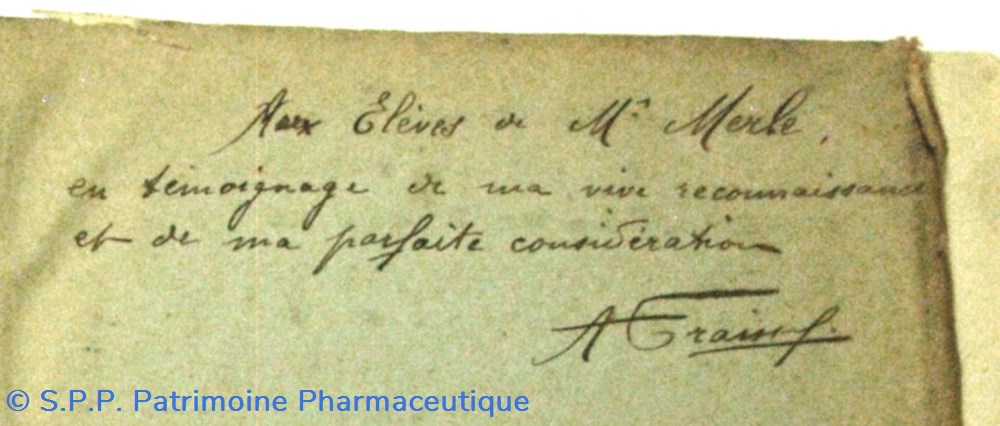 Aux Elèves de Mr Merle,
en témoignage de ma vive reconnaissance
et de ma parfaite considération
A
© S.P.P. Patrimoine Pharmaceutique